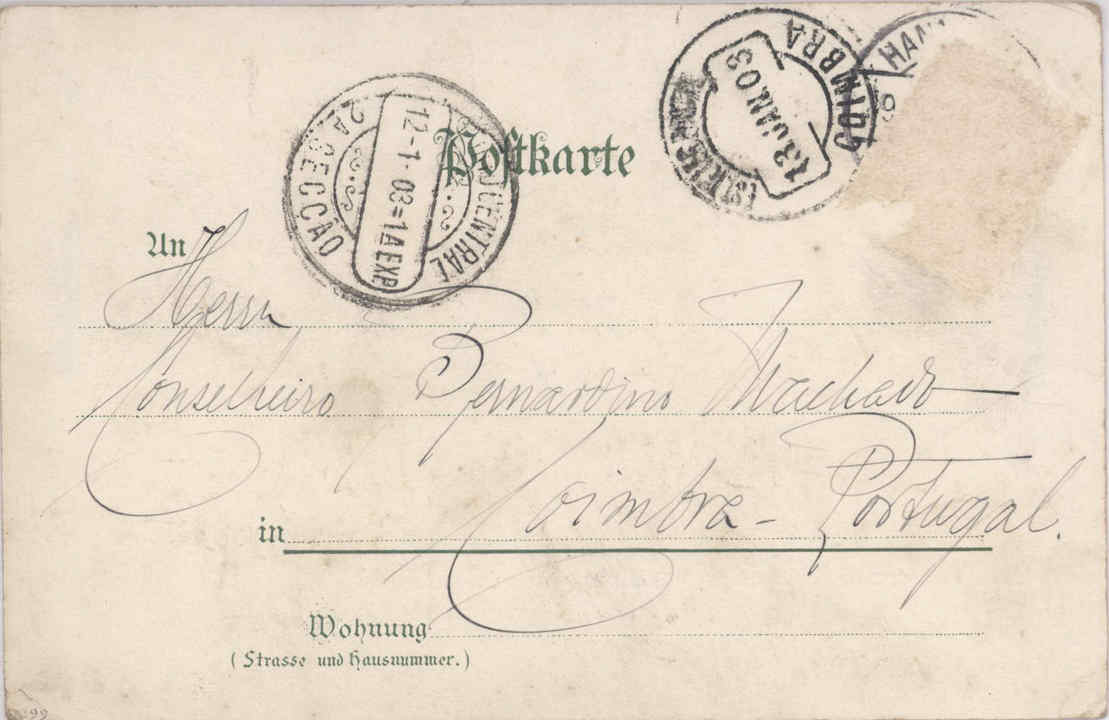 COIMBRA
13 JAN. 03
HAN
CENTRAL
12-1-03=1A EXP
2A SECCÃO
Postkarte
An Herrn
Conselheiro Bernardino Machado
in Coimbra - Portugal.
Wohnung
(Strasse und Hausnummer.)
99